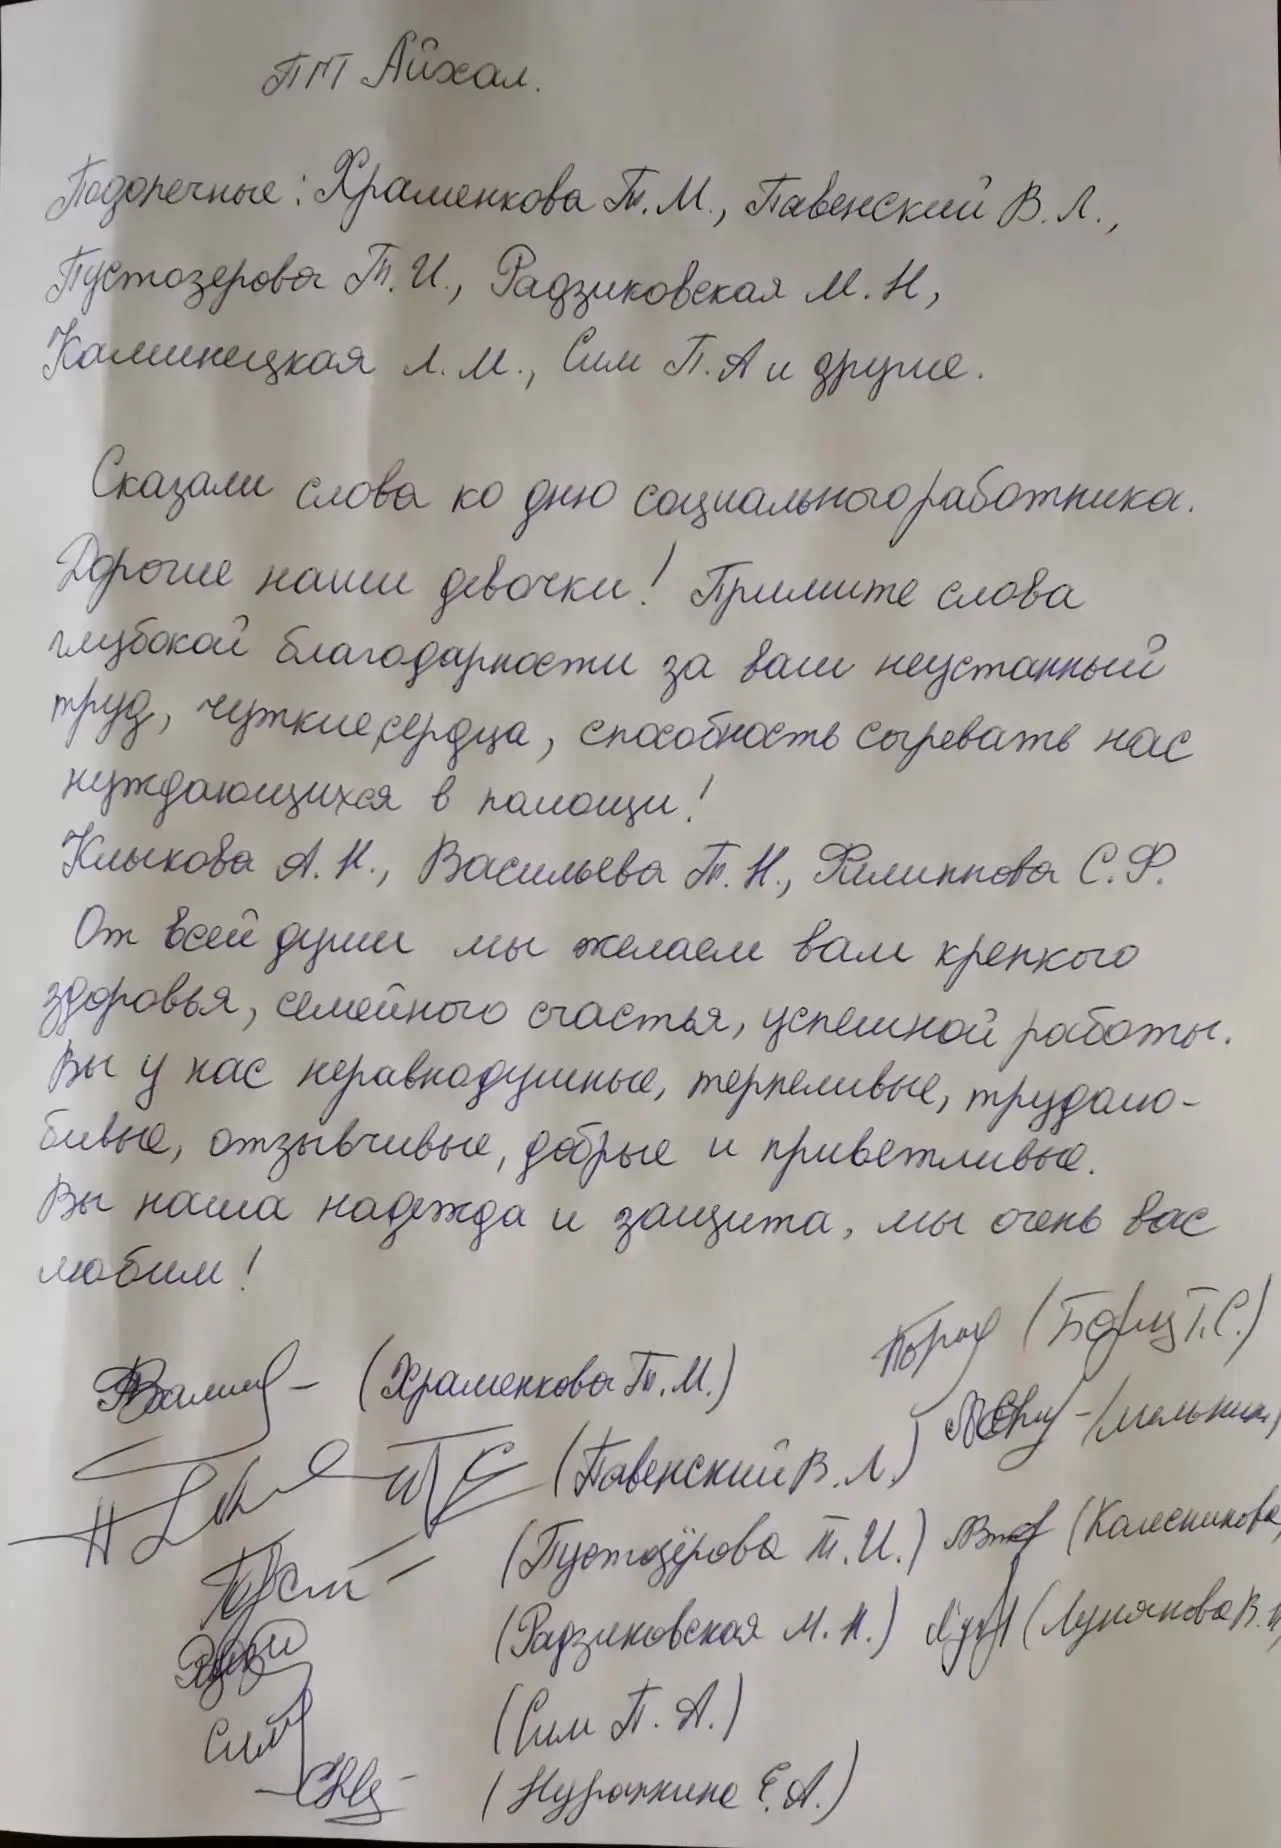 ПМ Айхал.
Подопечные: Храменкова Т.М., Павенский В.Л.,
Пустозерова Т.И., Радзиковская М.Н,
Каминецкая Л.М., Сим П.А и другие.
Сказали слова ко дню социального работника.
Дорогие наши девочки! Примите слова
глубокой благодарности за ваш неустанный
труд, чуткие сердца, способность согревать нас
нуждающихся в помощи!
Клыкова А.Н., Васильева Т.Н., Филиппова С.Ф.
От всей души мы желаем вам крепкого
здоровья, семейного счастья, успешной работы.
Вы у нас неравнодушные, терпеливые, трудолю-
бивые, отзывчивые, добрые и приветливые.
Вы наша надежда и защита, мы очень вас
любим!
(Борщ Г.С.)
(Храменкова Т.М.)
(Павенский В.Л.)
(Пустозёрова Т.И.) (Колесникова
(Радзиковская М.Н.) (Лунякова В.
Сим (Сим П.А.)
Е.А.)